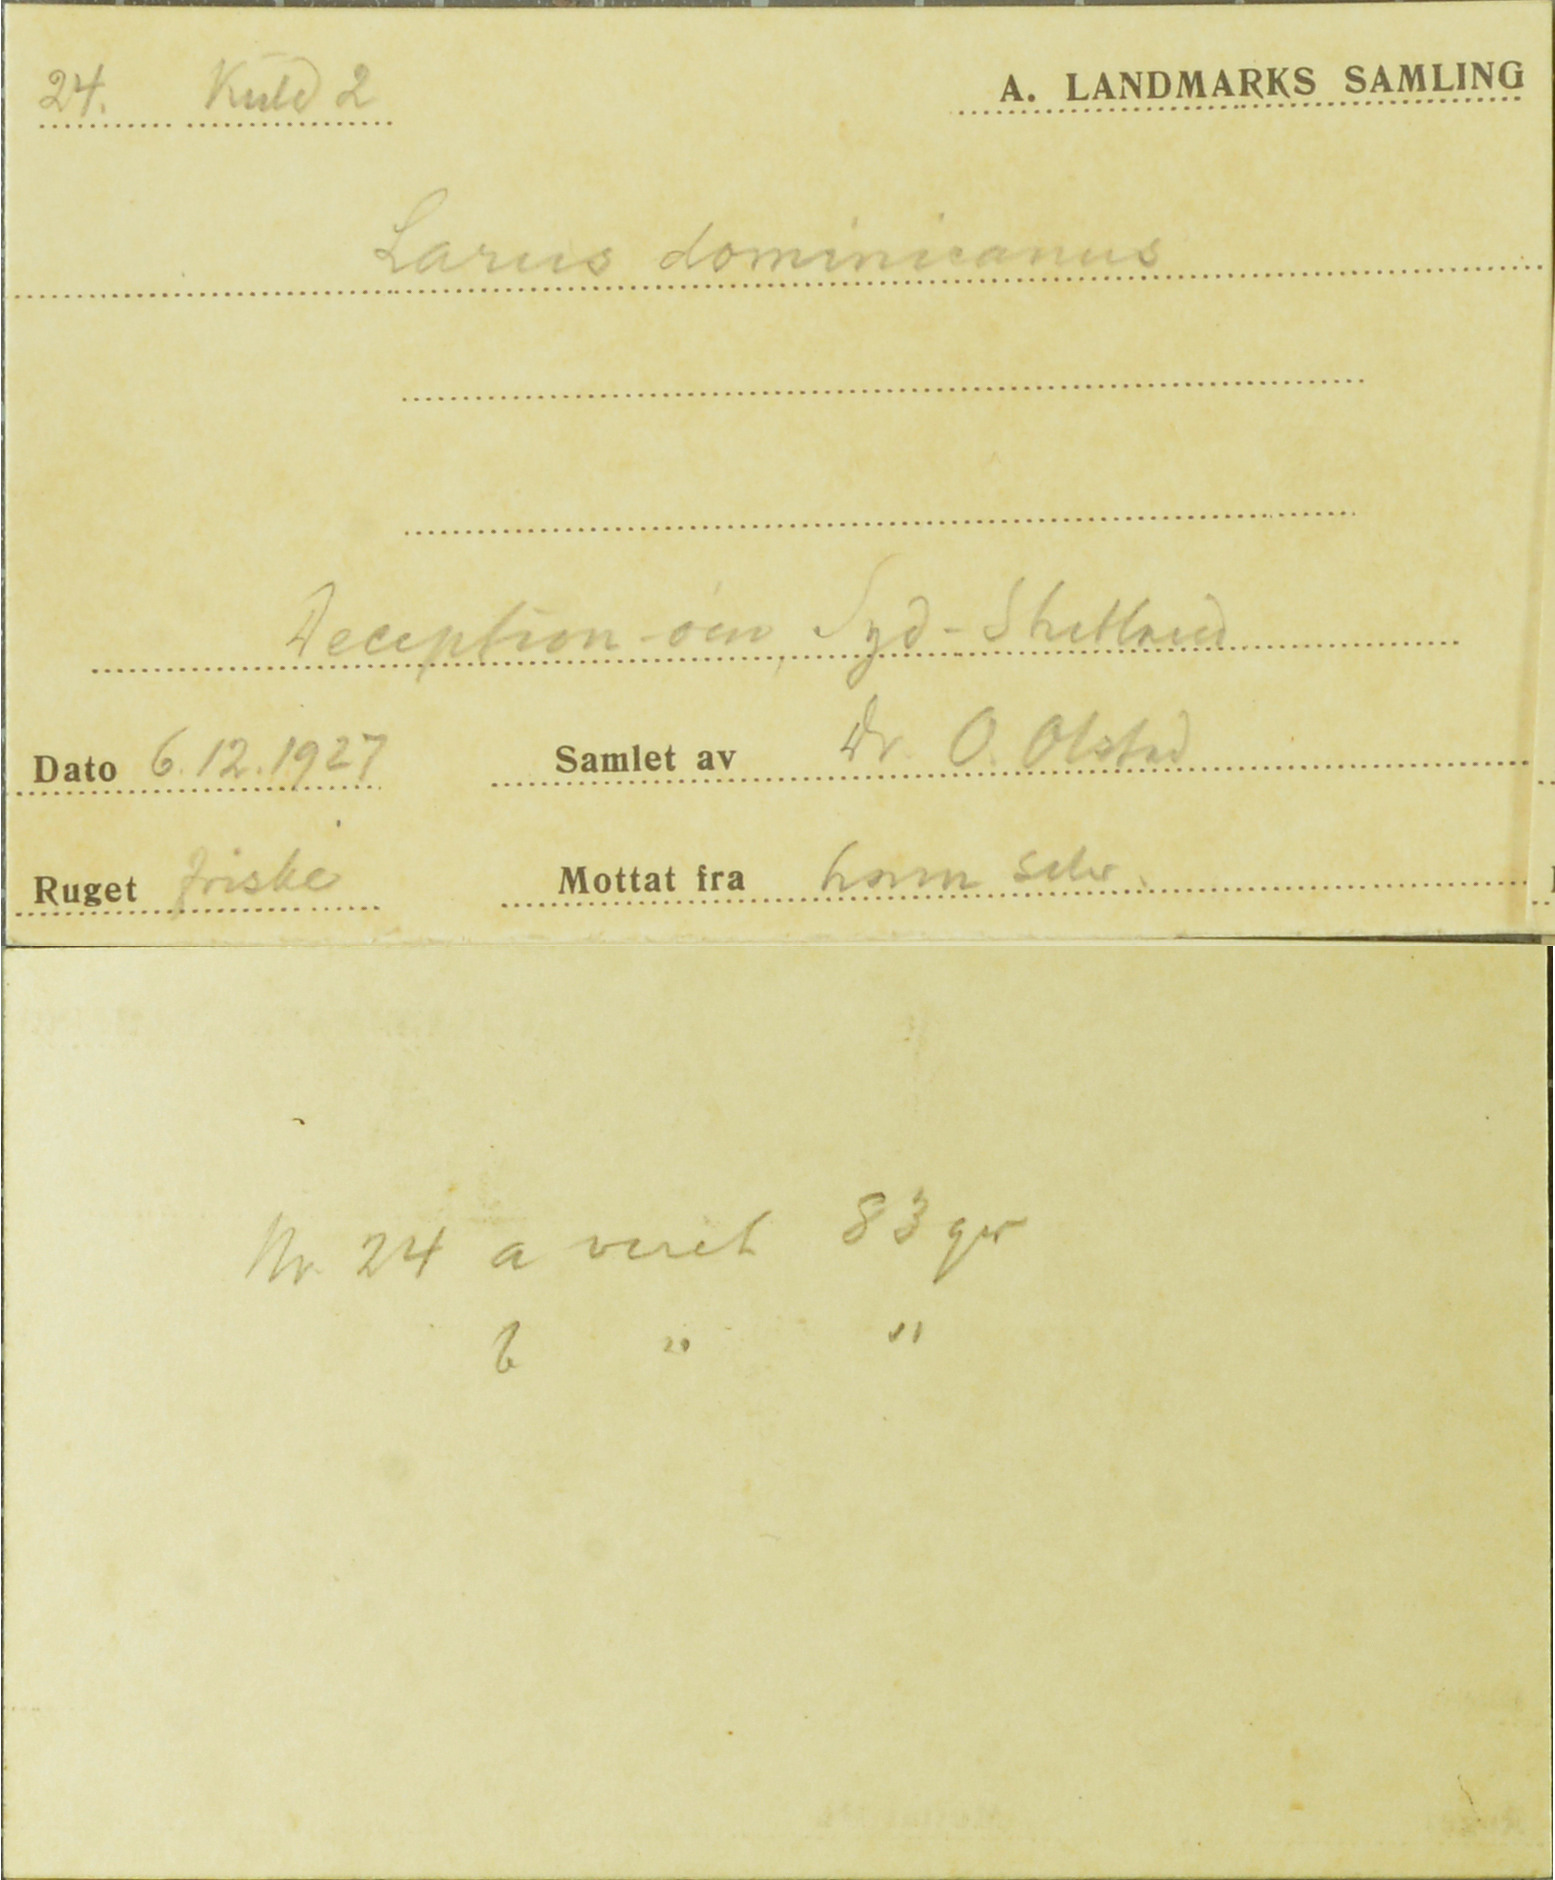 24. Kuld 2 A. LANDMARKS SAMLING
Larus dominicanus
Deception-øen, Syd-Shetland
Dato 6.12.1927 Samlet av Dr. O. Olstad
Ruget friske Mottat fra ham selv.
Nr. 24 a veiet 83 gr
b " "